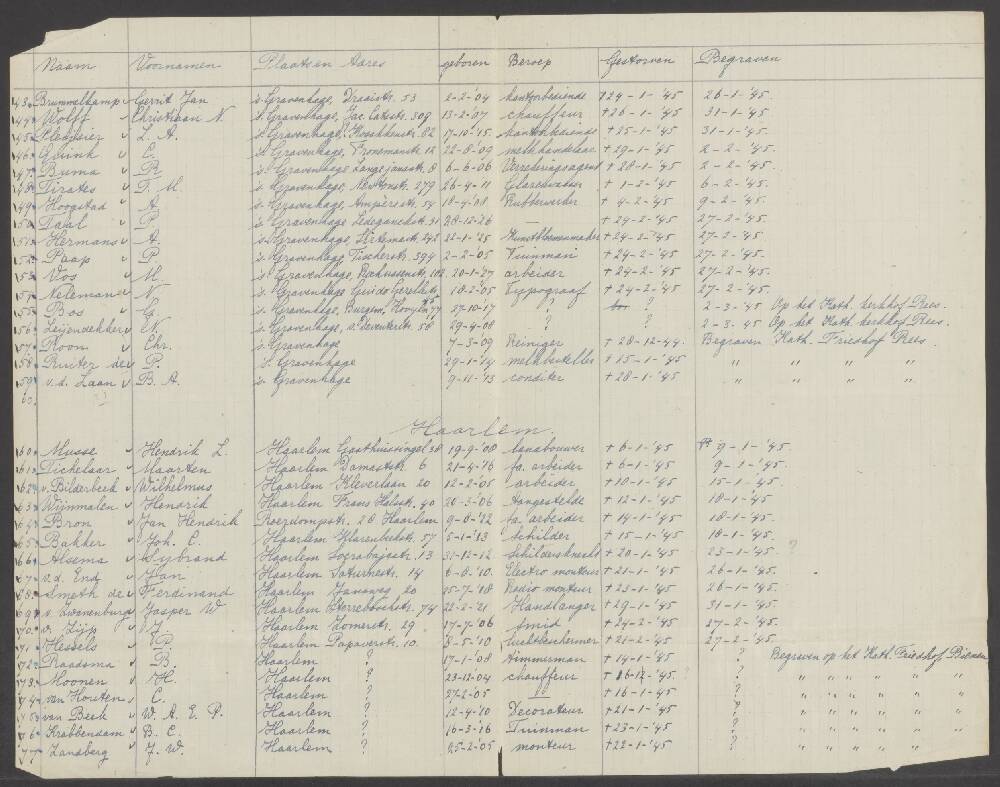 Naam Voornamen Plaats en Adres geboren Beroep Gestorven Begraven
43. Brummelkamp v Gerrit Jan 's Gravenhage, Draaistr. 53 2-2-'04 kantoorbediende †24-1-'45 26-1-'45.
44. Wolff v Christiaan N 's Gravenhage, Jac. Catsstr. 309 13-2-'07 chauffeur †26-1-'45 31-1-'45.
45. Pleijsier v L. A. 's Gravenhage, 82 17-10-'15 kantoorbediende †25-1-'45 31-1-'45.
46. Guink v C. 's Gravenhage, 12 22-8-'09 melkhandelaar †29-1-'45 2-2-'45.
47. Buma v R 's Gravenhage Lange Janestr. 8 6-6-'06 Verzekeringsagent †28-1-'45 2-2-'45.
48. Pirates v T. M. 's Gravenhage, Newtonstr. 279 26-4-'11 Glazenwasser †1-2-'45 6-2-'45.
49. Hoogstad v A. 's Gravenhage, Ampèrestr. 54 18-4-'08 Rubberwerker †4-2-'45 9-2-'45.
50. Taal v P. 's Gravenhage Ledeganckstr. 31 28-12-'26 — †24-2-'45 27-2-'45.
51. Hermans v A. 's Gravenhage, 242 22-1-'25 Kunstbloemenmaker †24-2-'45 27-2-'45
52. Paap v P 's Gravenhage Fischerstr. 394 2-2-'05 Tuinman †24-2-'45 27-2-'45.
53. Vos v M. 's Gravenhage, Rochussenstr. 102 20-1-'27 arbeider †24-2-'45 27-2-'45.
54. Neleman v N. 's Gravenhage Guido Gezellestr. 45 10-2-'05 Typograaf †24-2-'45 27-2-'45.
55. Bos v G. 's Gravenhage, Burgem. Hooylin 77 27-10-'17 ? ? 2-3-'45 Op het Kath. kerkhof Rees.
56. Leijendekker v N. 's Gravenhage, v. Deventerstr. 56 29-4-'08 ? ? 2-3-45 Op het Kath. kerkhof Rees.
57. Roon v Chr. 's Gravenhage 7-3-'09 Reiniger †28-12-44. Begraven Kath. Friedhof Rees.
58. Ruiter de v P. 's Gravenhage 29-1-'14 melkbesteller †15-1-'45 " " " "
59. v.d. Laan v B. A. 's Gravenhage 9-11-'13 conditer †28-1-'45 " " " "
60.
Haarlem.
60. Musse v Hendrik L. Haarlem Gasthuissingel 38 19-9-'08 landbouwer †6-1-'45 9-1-'45.
61. Tichelaar v Maarten Haarlem Damaststr. 6 21-4-'16 fa. arbeider †6-1-'45 9-1-'45.
62. v. Bilderbeek v Wilhelmus Haarlem Kleverlaan 20 12-2-'05 arbeider †10-1-'45 15-1-45.
63. Wijnmalen v Hendrik Haarlem Frans Halsstr. 40 20-3-'06 Aangestelde †12-1-'45 18-1-'45.
64. Bron v Jan Hendrik Roerdompstr. 28 Haarlem 9-8-'22 fa. arbeider †14-1-'45 18-1-'45.
65. Bakker v Joh. C. Haarlem Klarenbeekstr. 57 5-1-'13 Schilder †15-1-'45 18-1-'45.
66. Alsema v Sybrand Haarlem Soerabajastr. 13 31-12-'12 Schildersknecht †20-1-'45 23-1-'45 ?
67. v.d. End v Jan Haarlem Saturnustr. 14 6-8-'10. Electro monteur †21-1-'45 26-1-'45.
68. Smeth de v Ferdinand Haarlem Javaweg 20 25-7-'18 Radio monteur †23-1-'45 26-1-'45.
69. v. Zwanenburg v Jasper W Haarlem Sterreboschstr. 74 22-2-'21 Handlanger †29-1-'45 31-1-'45.
70. v. Zijp v J. Haarlem Zomerstr. 29 17-7-'06 smid †24-2-'45 27-2-'45.
71. Hessels v P. Haarlem Papaverstr. 10. 8-5-'10 luchtbeschermer †21-2-'45 27-2-'45.
72. Raadsma v B. Haarlem ? 17-1-'08 timmerman †14-1-'45 ? Begraven op het Kath. Friedhof Bienen
73. Moonen v H. Haarlem ? 23-12-'04 chauffeur †16-12-'45 ? " " " " " "
74. van Houten v C. Haarlem ? 27-2-'05 " †16-1-'45 ? " " " " " "
75. van Beek v W. A. E. P. Haarlem ? 12-4-'10 Decorateur †21-1-'45 ? " " " " " "
76. Krabbendam v B. C. Haarlem ? 16-3-'16 Tuinman †23-1-'45 ? " " " " " "
77. Landberg v J. W. Haarlem ? 25-2-'05 monteur †22-1-'45 ? " " " " "